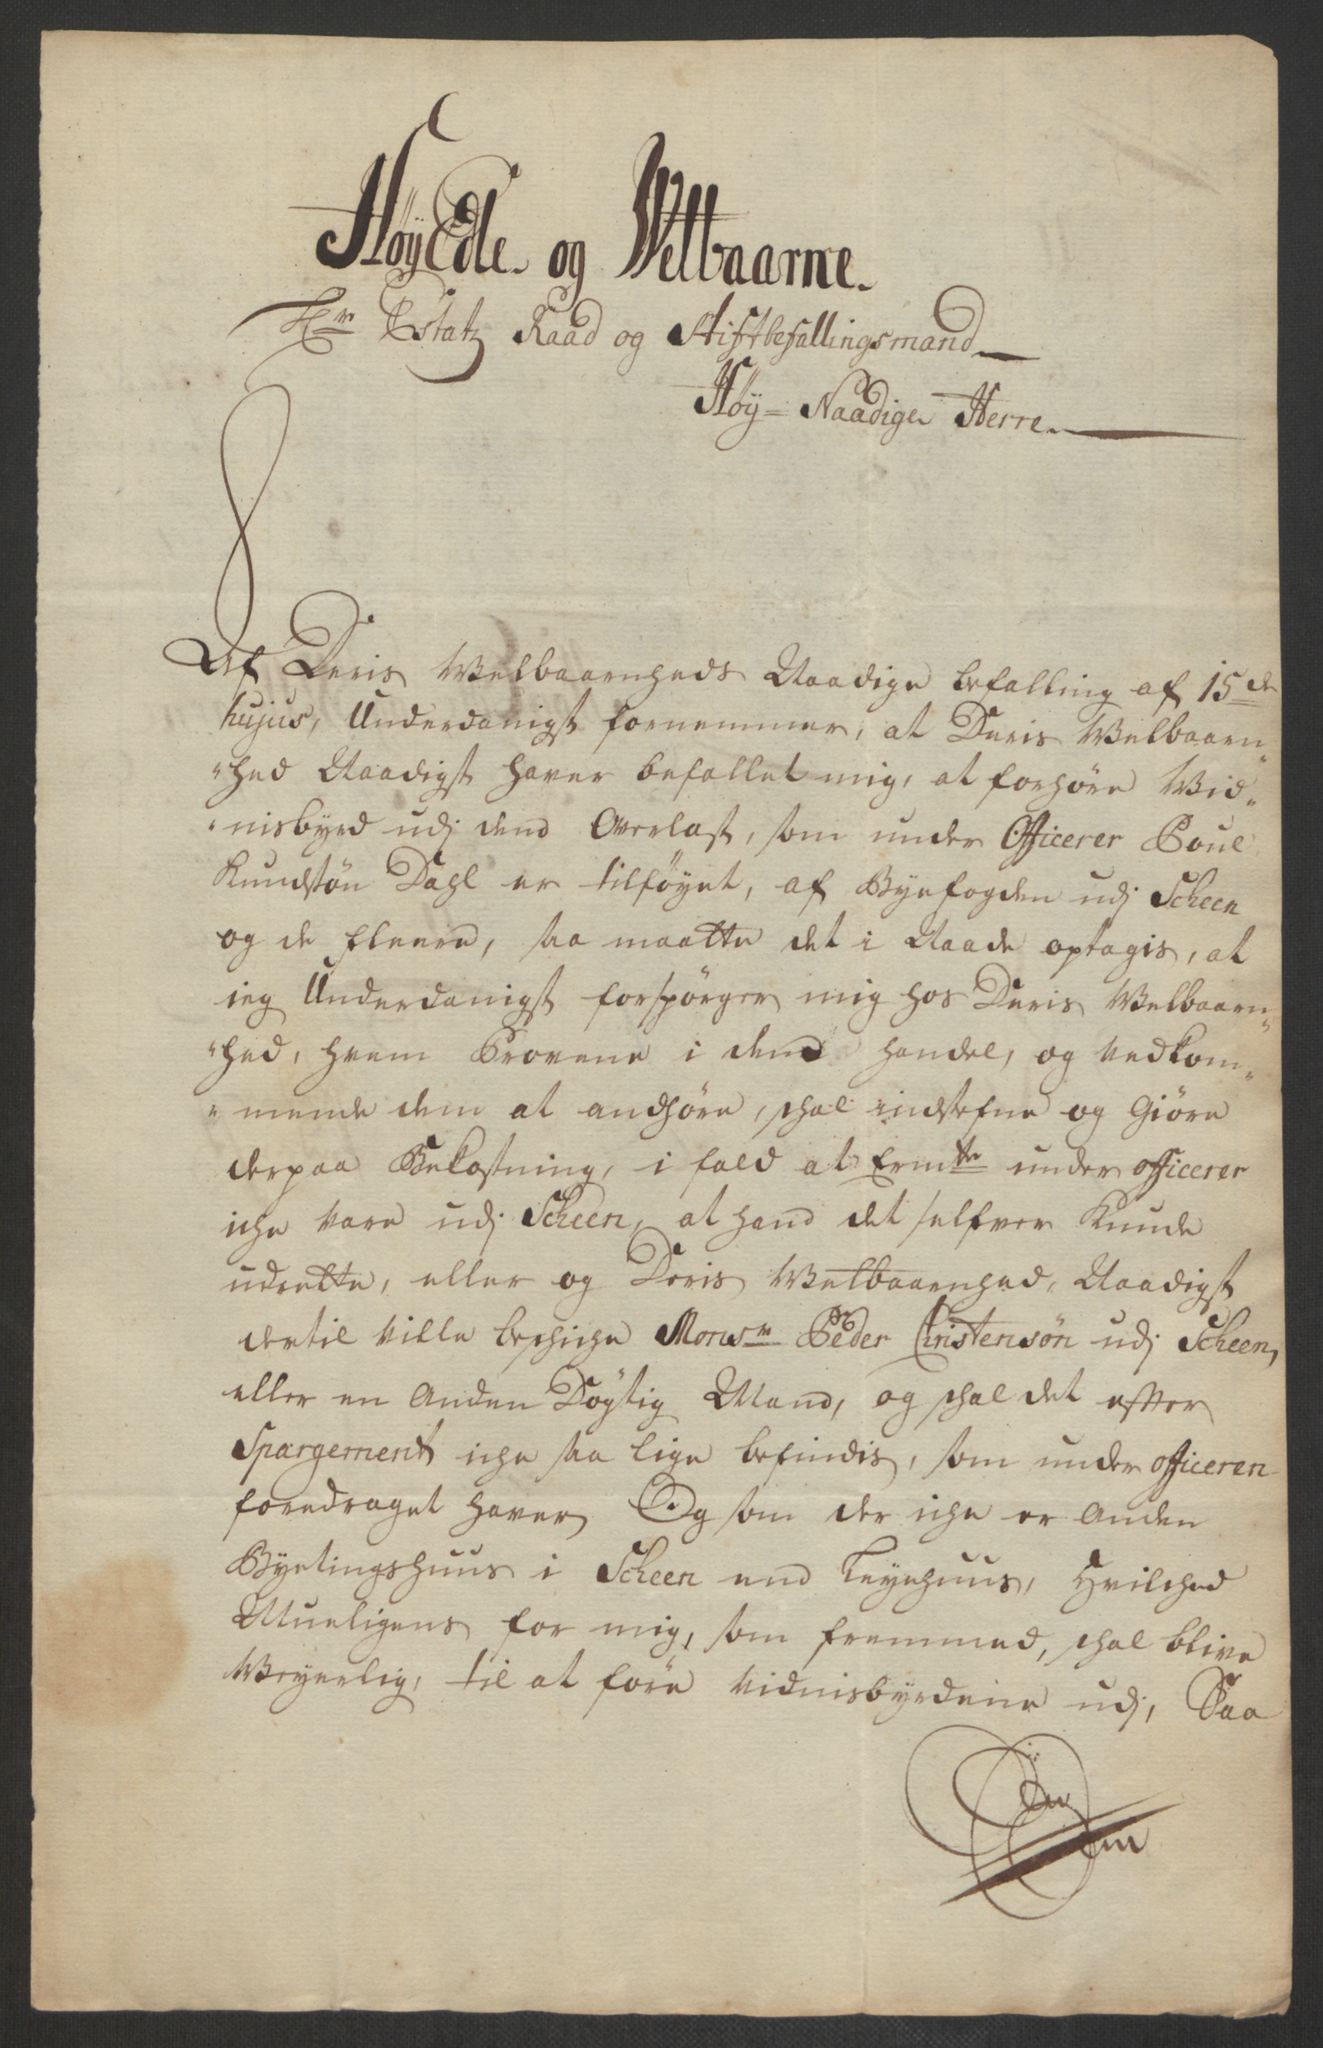 HøyEdle og Welbaarne
Hr Estatz Raad og Stiftbefallingsmand
Høy-Naadige Herre
Af Deris Welbaarnheds Naadige befalling af 15de
hujus, Underdanigst fornemmer, at Deris Welbaarn„
„hed Naadigst haver befallet mig, at forhøre Wid„
„nisbyrd udj dend Overlast, som under Officerer Poul
Knudsøn Dahl er tilføyet, af Byefogden udj Scheen
og de fleere, saa maatte det i Naade optagis, at
jeg Underdanigst forspørger mig hos Deris Welbaarn„
„hed, hvem Provene i dend handel, og Vedkom„
„mende dem at andhøre, schal indstefne og Giøre
derpaa Bekostning, i fald at Ermte under officerer
iche vare udj Scheen, at hand det selfver Kunde
udrette, eller og Deris Welbaarnhed, Naadigst
dertil Ville beschiche Monsr Peder Christensøn udj Scheen,
eller en Anden Døgtig Mand, og schal det efter
Spargement iche saa lige befindis, som under officeren
foredraget haver, Og som der iche er Anden
Byetingshuus i Scheen end Leyehuus, Hvilched
Mueligens for mig, som fremmed, schal blive
Weyerlig, til at føre Vidnisbyrdene udj, Saa